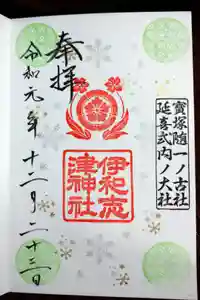 寳塚随一ノ古社
延喜式内ノ大社
奉拝
伊和志
津神社
令和元年十二月二十三日